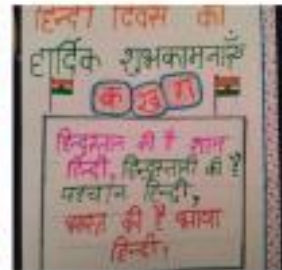 हिन्दी दिवस की
हार्दिक शुभकामनाएँ
क ख ग
हिन्दुस्तान की है शान
हिन्दी, हिन्दुस्तानी की है
पहचान हिन्दी,
भारत की है भाषा
हिन्दी।